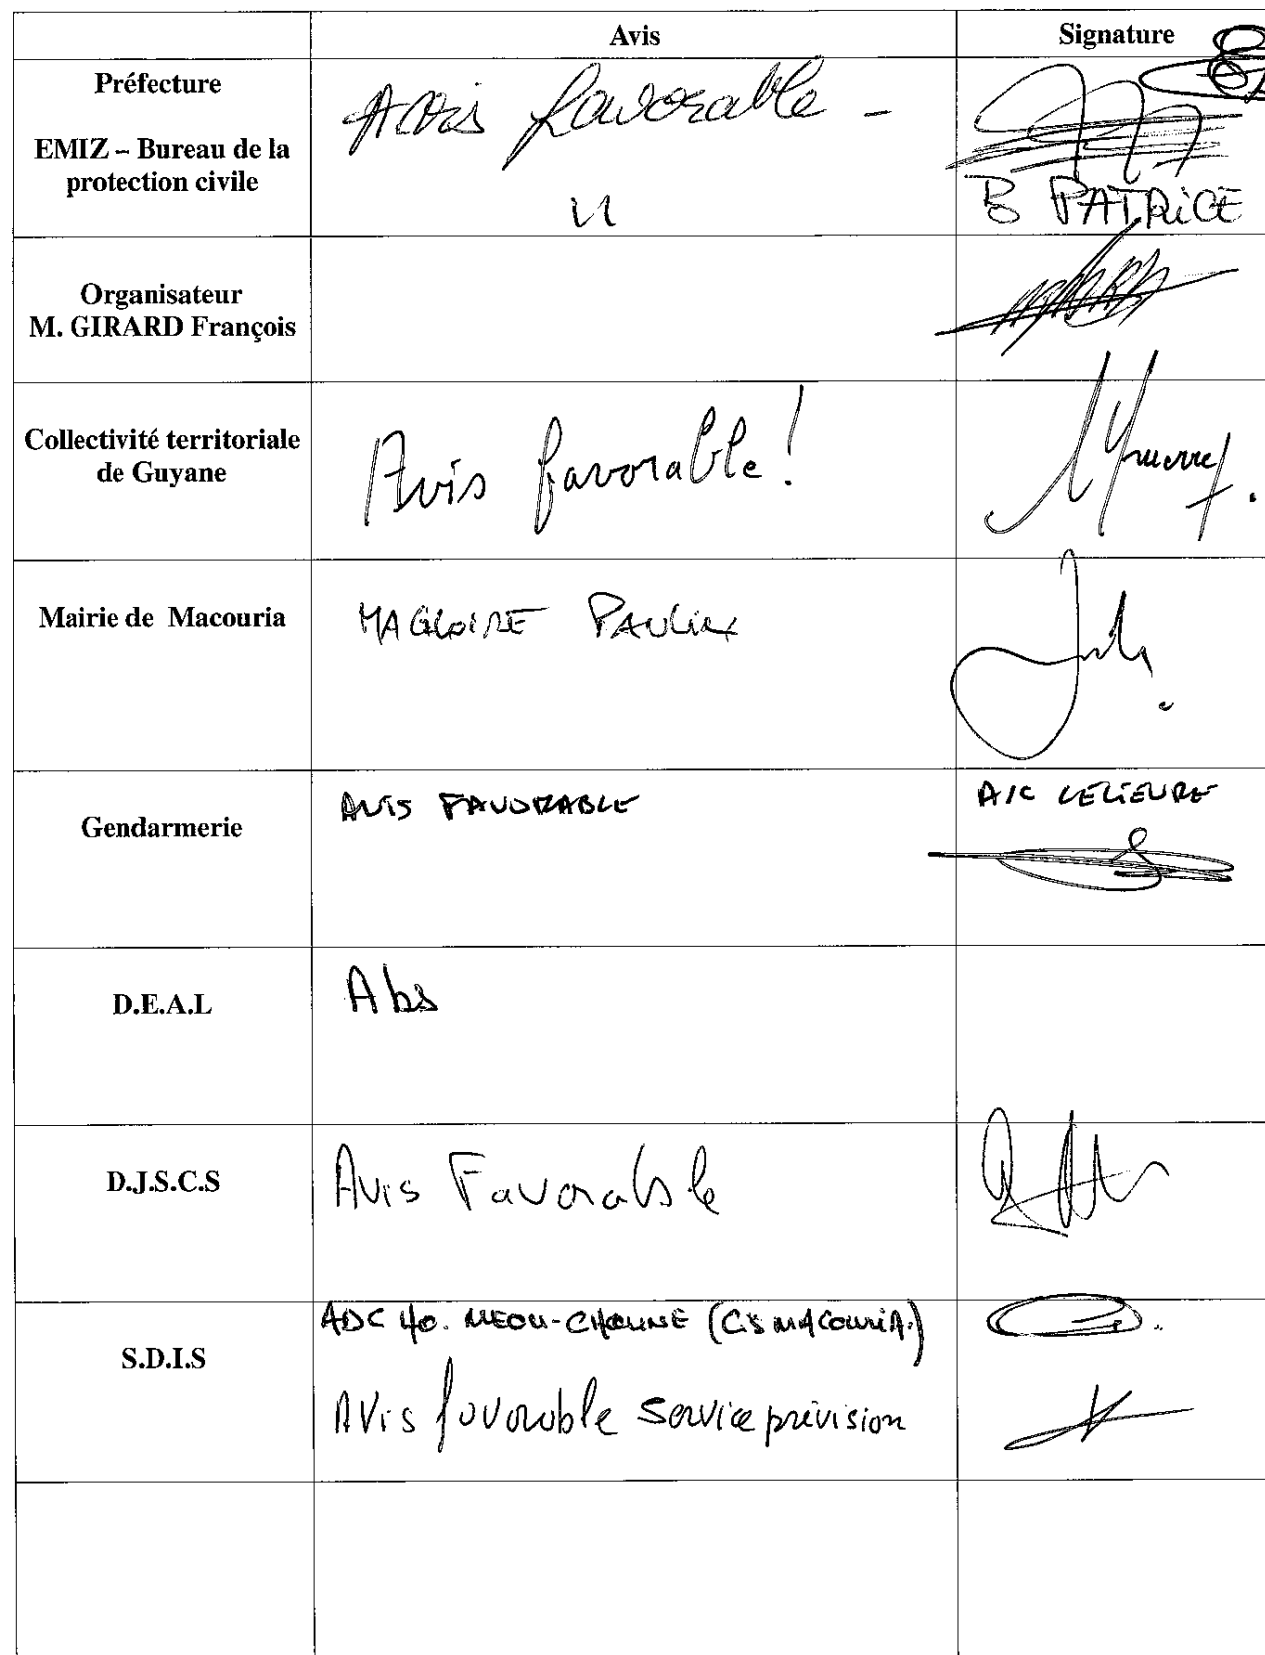 Avis
Signature
Préfecture
EMIZ – Bureau de la
protection civile
Avis favorable -
B PATRICE
Organisateur
M. GIRARD François
Collectivité territoriale
de Guyane
Avis favorable !
Mairie de Macouria
MAGLOIRE
Gendarmerie
AVIS FAVORABLE
A/C LELIEVRE
D.E.A.L
Abs
D.J.S.C.S
Avis Favorable
S.D.I.S
ADC (CIS MACOURIA.)
Avis favorable service prévision